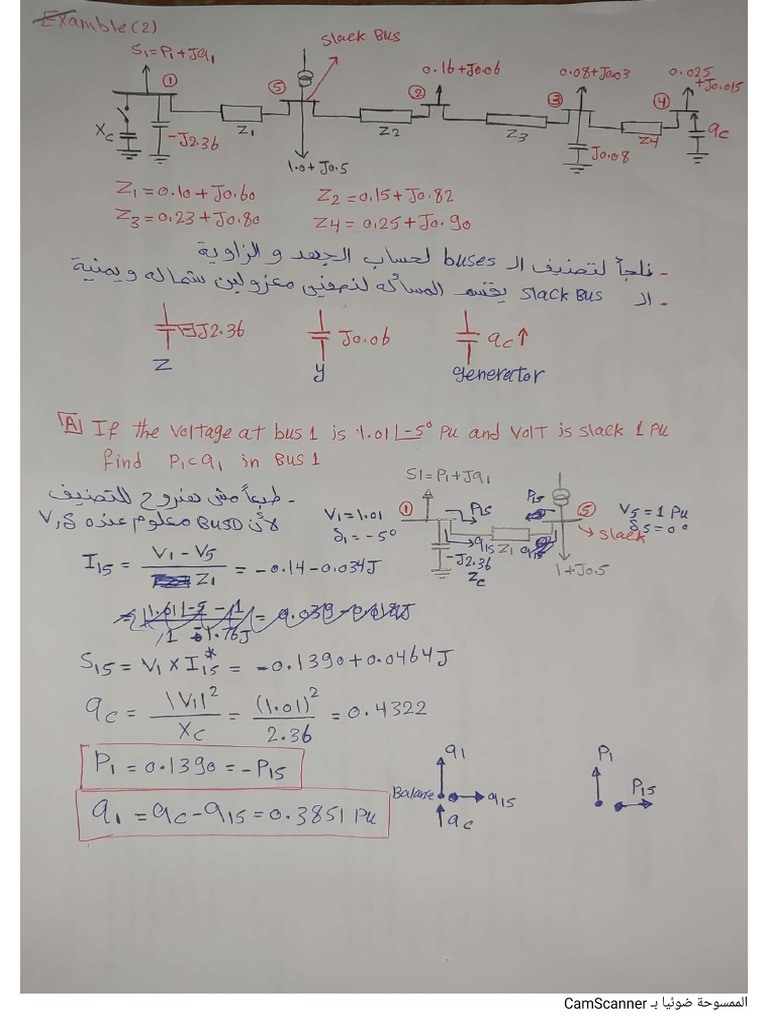 Examble(2)
Slack Bus
S1=P1+Jq1
①
⑤
②
0.16+J0.06
③
0.08+J0.03
④
0.025
+J0.015
Xc
-J2.36
Z1
Z2
Z3
Z4
J0.08
qc
1.0+J0.5
Z1=0.10+J0.60
Z2=0.15+J0.82
Z3=0.23+J0.80
Z4=0.25+J0.90
- نلجأ لتصنيف الـ buses لحساب الجهد و الزاوية
- الـ slack Bus يقسم المسأله لنصفين معزولين شماله ويمنية
J2.36
J0.06
qc↑
Z
y
generator
[A] If the voltage at bus 1 is 1.01∟-5° PU and volt is slack 1 PU
find P1<q1 in Bus 1
- طبعاً مش هنروح للتصنيف
لأن BUSD معلوم عنده V,δ
S1=P1+Jq1
V1=1.01
δ1=-5°
①
P15
P15
⑤
V5=1 PU
δ5=0°
slack
q15
Z1
-J2.36
Zc
1+J0.5
I15 = V1-V5 / Z1 = -0.14-0.034J
S15=V1×I15* = -0.1390+0.0464J
qc = |V1|² / Xc = (1.01)² / 2.36 = 0.4322
P1=0.1390=-P15
q1=qc-q15=0.3851 PU
q1
Balanse
q15
qc
P1
P15
الممسوحة ضوئيا بـ CamScanner